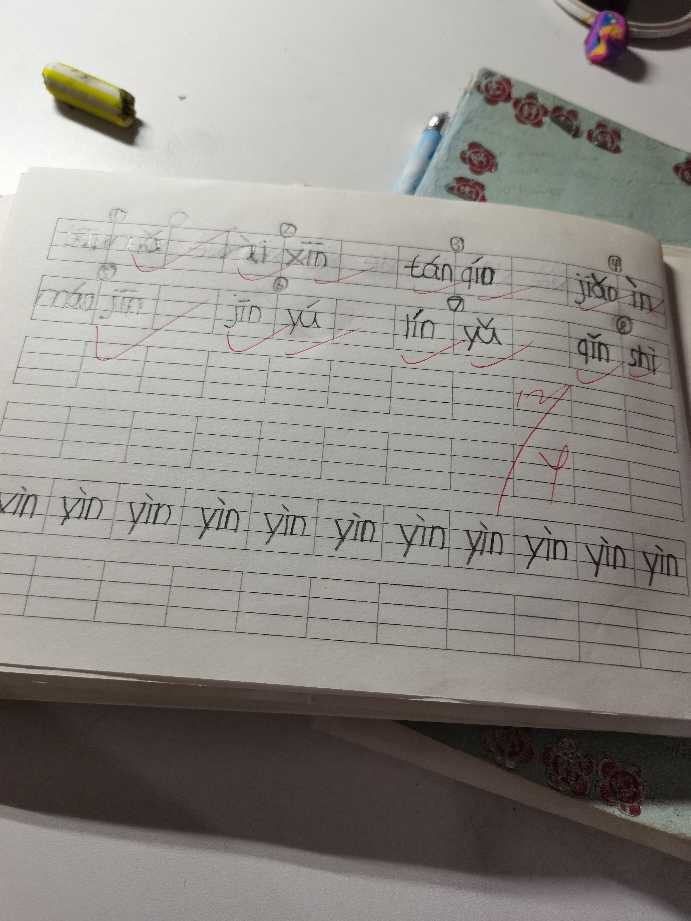 ① ② ③ ④
xīn tán qín jiǎo ìn
⑤ ⑥ ⑦ ⑧
máo jīn jīn yú lín yǔ qǐn shì
12/4
yìn yìn yìn yìn yìn yìn yìn yìn yìn yìn yìn